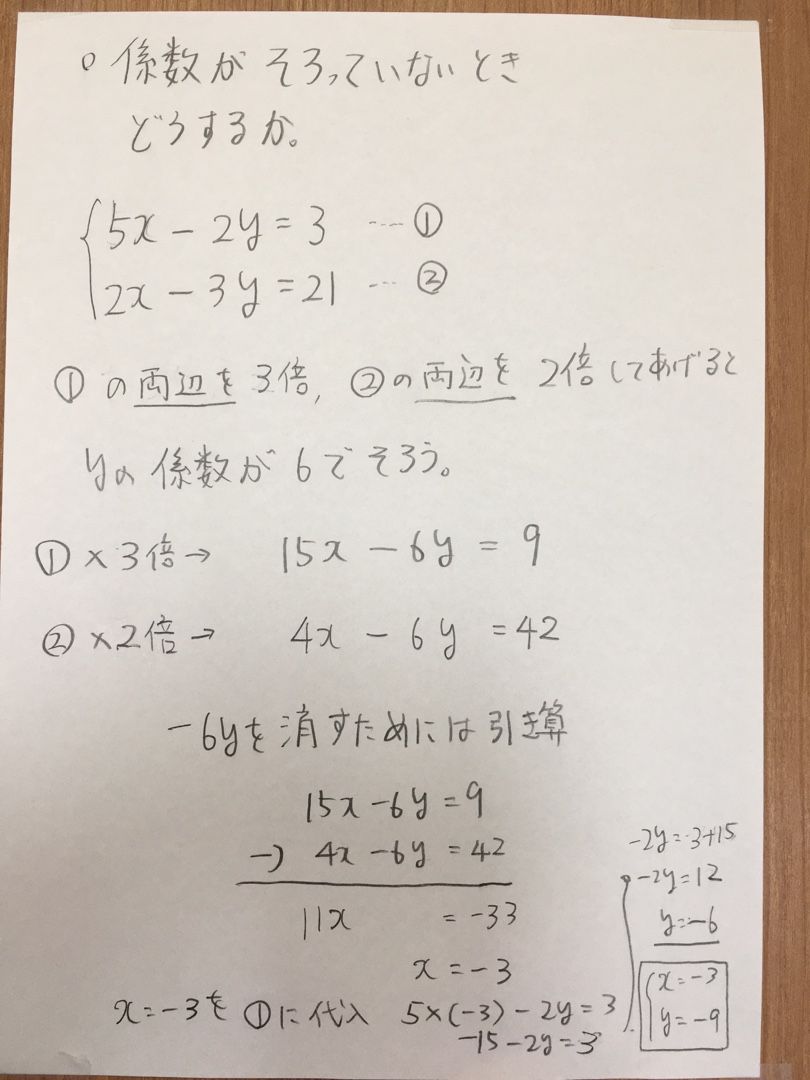 ○ 係数がそろっていないとき
どうするか。
5x - 2y = 3 ... ①
2x - 3y = 21 ... ②
①の両辺を3倍, ②の両辺を2倍してあげると
yの係数が6でそろう。
①×3倍→ 15x - 6y = 9
②×2倍→ 4x - 6y = 42
-6yを消すためには引き算
15x - 6y = 9
-) 4x - 6y = 42
11x = -33
x = -3
x = -3を①に代入 5×(-3) - 2y = 3
-15 - 2y = 3
-2y = 3+15
-2y = 12
y = -6
x = -3
y = -9